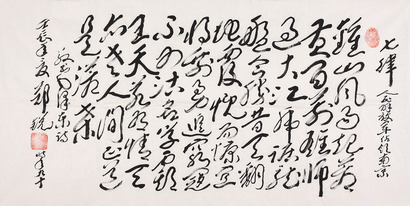 七律
人民解放军占领南京
钟山风雨起苍
黄百万雄师
过大江虎踞龙
盘今胜昔天翻
地覆慨而慷宜
将剩勇追穷寇
不可沽名学霸
王天若有情天
亦老人间正道
是沧桑
敬书毛泽东诗
壬辰年夏 郑锐 时年九十